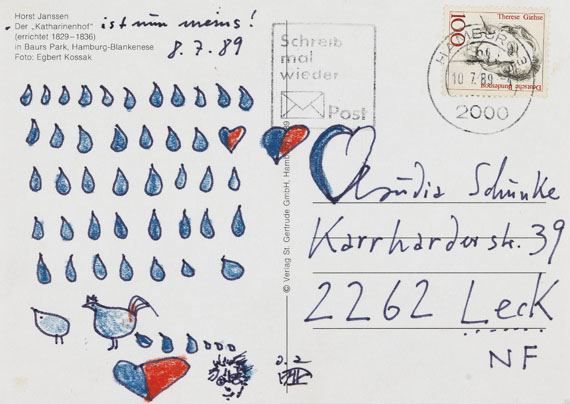 Horst Janssen
Der „Katharinenhof"
(errichtet 1829–1836)
in Baurs Park, Hamburg-Blankenese
Foto: Egbert Kossak
ist nun meins!
8.7.89
Schreib
mal
wieder
Post
Therese Giehse
100
Deutsche Bundespost
HAMBURG
10.7.89
2000
© Verlag St. Gertrude GmbH, Hamburg
Claudia Schunke
Karrharderstr. 39
2262 Leck
NF